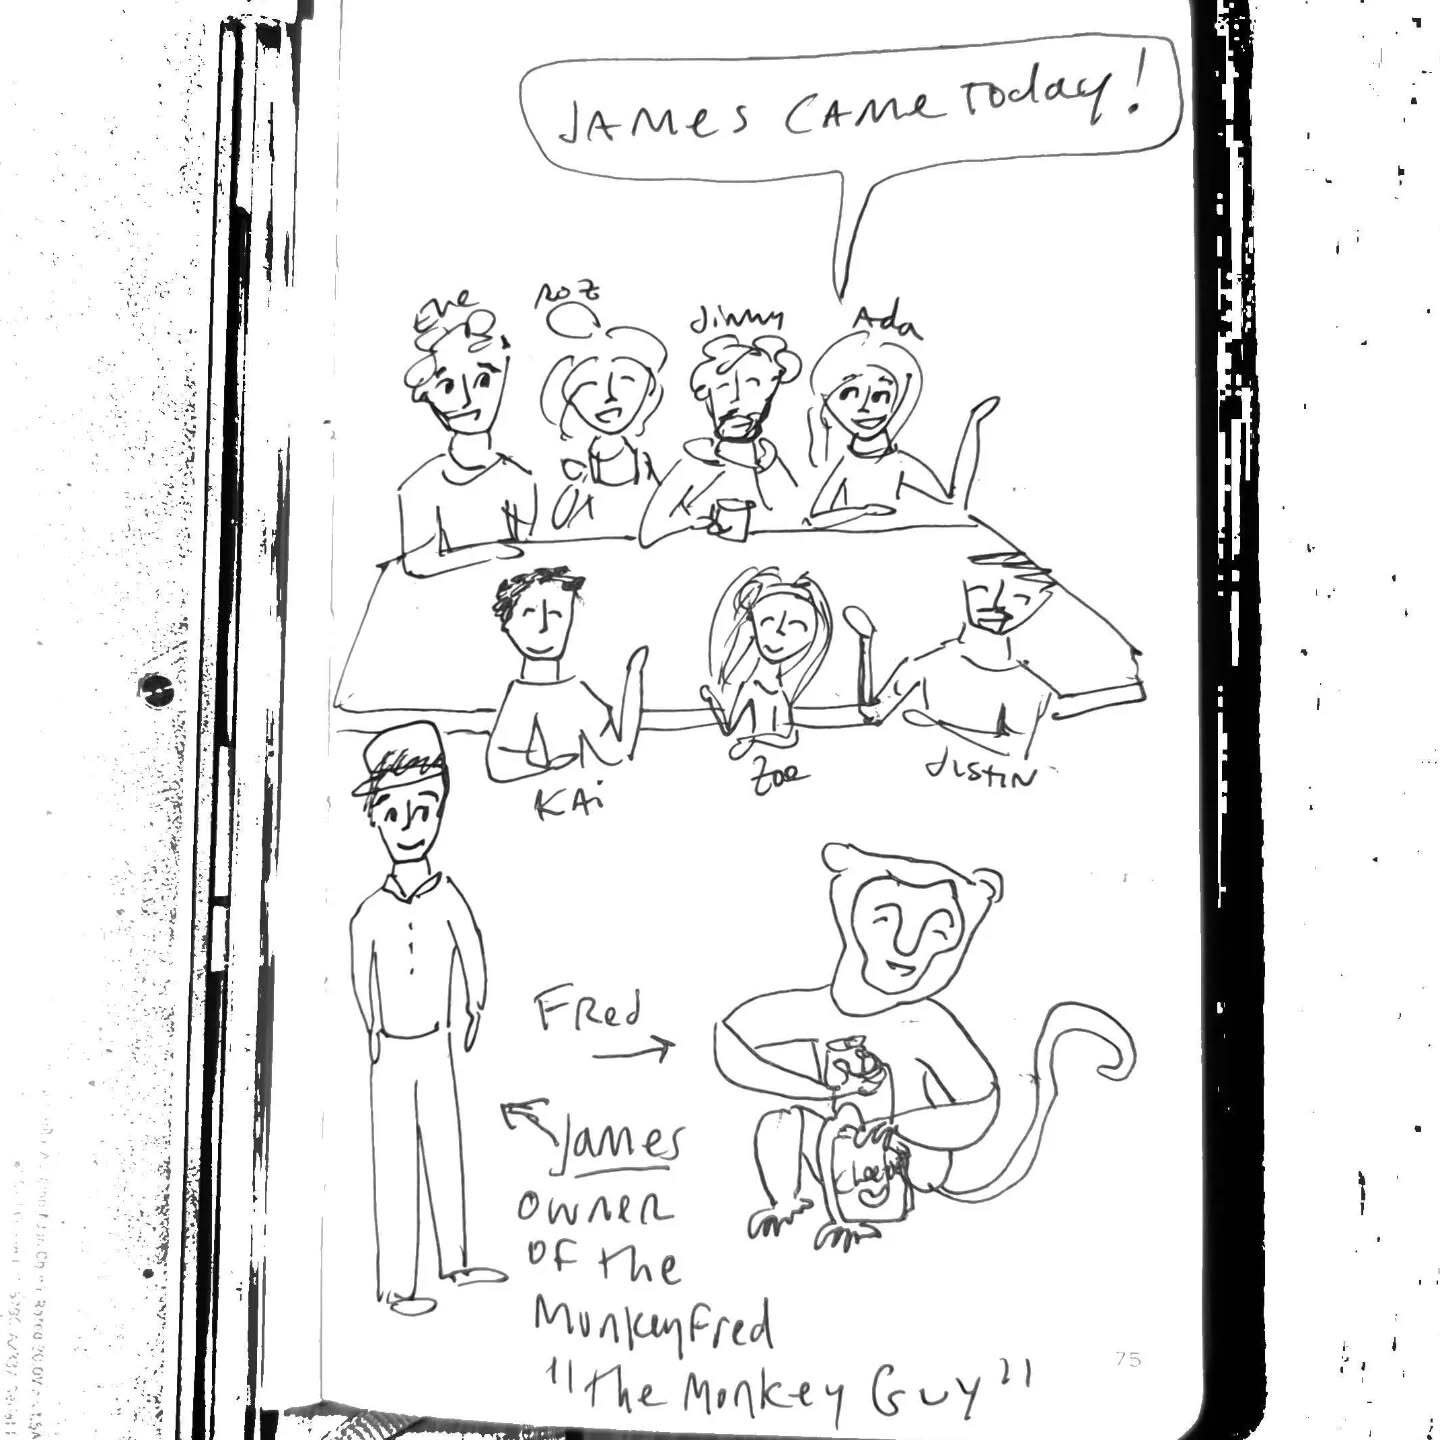 JAMes CAMe Today!
Eve
Roz
Jimmy
Ada
KAi
Zoe
JUSTIN
FRed
James
OWNER
OF the
MonkeyFred
"the Monkey Guy"
75